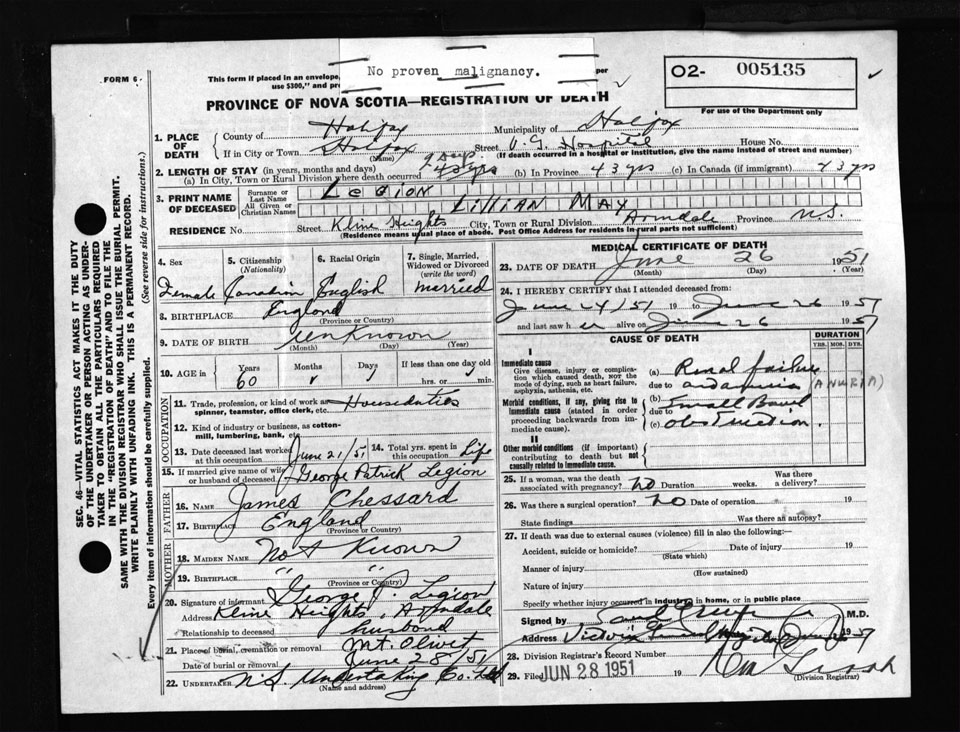 FORM 6
This form if placed in an envelope,
use $300," and pr
per
No proven malignancy.
O2- 005135
For use of the Department only
PROVINCE OF NOVA SCOTIA—REGISTRATION OF DEATH
1. PLACE OF DEATH
County of Halifax Municipality of Halifax
If in City or Town Halifax Street V.G. Hospital House No.
(Name) (If death occurred in a hospital or institution, give the name instead of street and number)
2. LENGTH OF STAY (in years, months and days) 9 days
(a) In City, Town or Rural Division where death occurred 43 yrs (b) In Province 43 yrs (c) In Canada (if immigrant) 43 yrs
3. PRINT NAME OF DECEASED
Surname or Last Name LEGION
All Given or Christian Names LILLIAN MAY
RESIDENCE No. Street Kline Heights City, Town or Rural Division Armdale Province N.S.
(Residence means usual place of abode. Post Office Address for residents in rural parts not sufficient)
4. Sex Female
5. Citizenship (Nationality) Canadian
6. Racial Origin English
7. Single, Married, Widowed or Divorced (write the word) married
8. BIRTHPLACE England
(Province or Country)
9. DATE OF BIRTH Unknown
(Month) (Day) (Year)
10. AGE in Years Months Days If less than one day old
60 hrs. or min.
OCCUPATION
11. Trade, profession, or kind of work as spinner, teamster, office clerk, etc. Houseduties
12. Kind of industry or business, as cotton-mill, lumbering, bank, etc.
13. Date deceased last worked at this occupation June 21/51
14. Total yrs. spent in this occupation Life
15. If married give name of wife or husband of deceased George Patrick Legion
FATHER
16. Name James Chessard
17. Birthplace England
(Province or Country)
MOTHER
18. Maiden Name Not Known
19. Birthplace " "
(Province or Country)
20. Signature of informant George P. Legion
Address Kline Heights, Armdale
Relationship to deceased husband
21. Place of burial, cremation or removal Mt. Olivet
Date of burial or removal June 28/51
22. Undertaker N.S. Undertaking Co. Ltd
(Name and address)
MEDICAL CERTIFICATE OF DEATH
23. DATE OF DEATH June 26 1951
(Month) (Day) (Year)
24. I HEREBY CERTIFY that I attended deceased from:
June 24/51 19 to June 26 1951
and last saw her alive on June 26 1951
CAUSE OF DEATH
DURATION
YRS. MOS. DYS.
I
Immediate cause
Give disease, injury or complication which caused death, not the mode of dying, such as heart failure, asphyxia, asthenia, etc.
(a) Renal failure
due to and anuria (ANURIA)
Morbid conditions, if any, giving rise to immediate cause (stated in order proceeding backwards from immediate cause).
(b) Small Bowel
due to
(c) obstruction.
II
Other morbid conditions (if important) contributing to death but not causally related to immediate cause.
25. If a woman, was the death associated with pregnancy? no Duration weeks. Was there a delivery?
26. Was there a surgical operation? no Date of operation 19
State findings Was there an autopsy?
27. If death was due to external causes (violence) fill in also the following:
Accident, suicide or homicide? Date of injury 19
(State which)
Manner of injury
(How sustained)
Nature of injury
Specify whether injury occurred in industry, in home, or in public place
Signed by M.D.
Address Victoria General 1951
28. Division Registrar's Record Number
29. Filed JUN 28 1951 19
(Division Registrar)
SEC. 46—VITAL STATISTICS ACT MAKES IT THE DUTY
OF THE UNDERTAKER OR PERSON ACTING AS UNDERTAKER
TO OBTAIN ALL THE PARTICULARS REQUIRED
IN THE "REGISTRATION OF DEATH" AND TO FILE THE
SAME WITH THE DIVISION REGISTRAR WHO SHALL ISSUE THE BURIAL PERMIT.
WRITE PLAINLY WITH UNFADING INK. THIS IS A PERMANENT RECORD.
Every item of information should be carefully supplied. (See reverse side for instructions.)